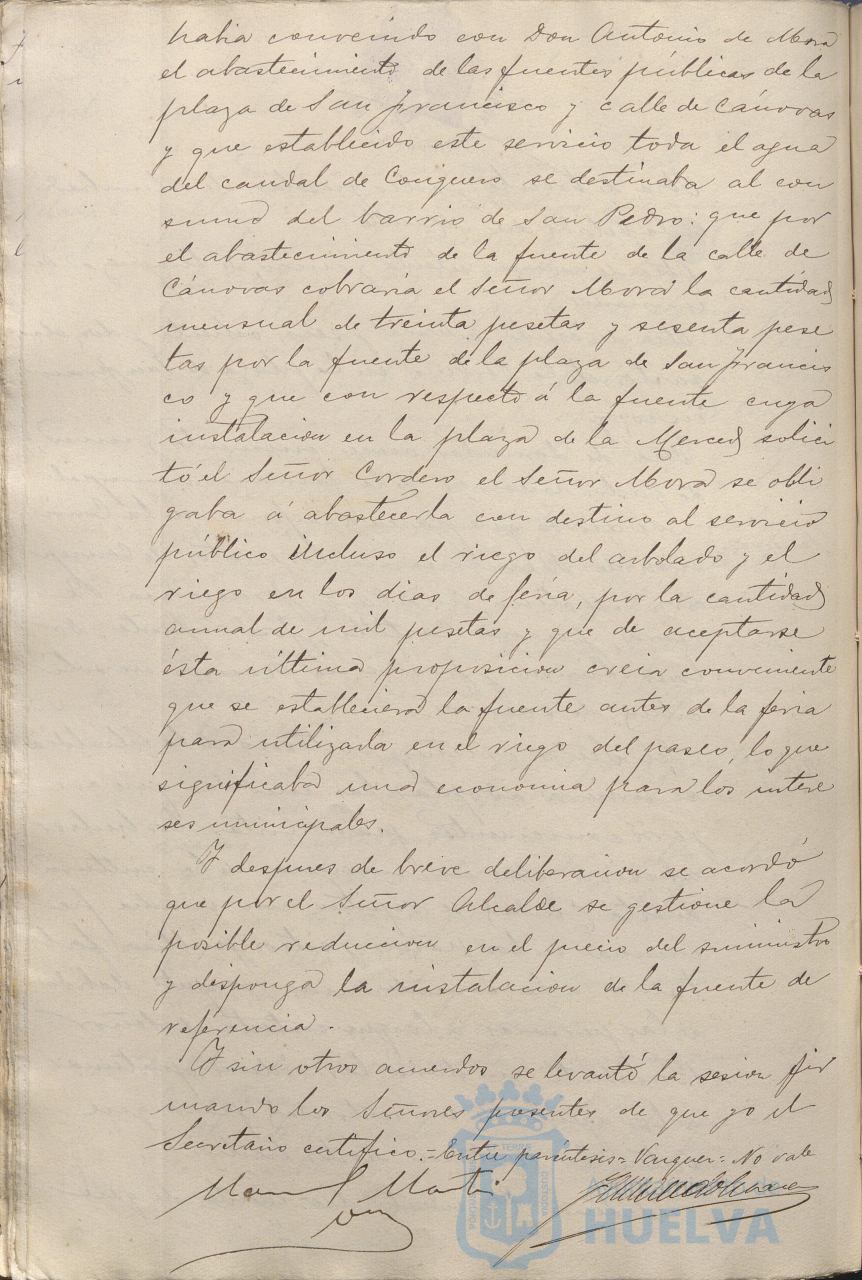 habia convenido con Don Antonio de Mora
el abastecimiento de las fuentes públicas de la
plaza de San Francisco y calle de Cánovas
y que establecido este servicio toda el agua
del caudal de Conquero se destinaba al con
sumo del barrio de San Pedro: que por
el abastecimiento de la fuente de la calle de
Cánovas cobraria el Señor Mora la cantidad
mensual de treinta pesetas y sesenta pese
tas por la fuente de la plaza de San Francis
co y que con respecto á la fuente cuya
instalacion en la plaza de la Merced solici
tó el Señor Cordero el Señor Mora se obli
gaba á abastecerla con destino al servicio
público incluso el riego del arbolado y el
riego en los dias de feria, por la cantidad
anual de mil pesetas y que de aceptarse
ésta última proposicion creia conveniente
que se estableciera la fuente antes de la feria
para utilizarla en el riego del paseo, lo que
significaba una economia para los intere
ses municipales.
Y despues de breve deliberacion se acordó
que por el Señor Alcalde se gestione la
posible reduccion en el precio del suministro
y disponga la instalacion de la fuente de
referencia.
Y sin otros acuerdos se levantó la sesion fir
mando los Señores presentes de que yo el
Secretario certifico.=Entre paréntesis= =No vale
HUELVA